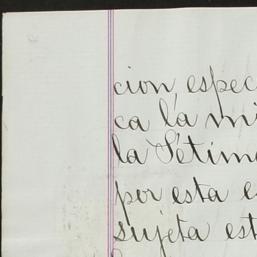 cion, espec
ca la mi
la Sétima
por esta e
sujeta est